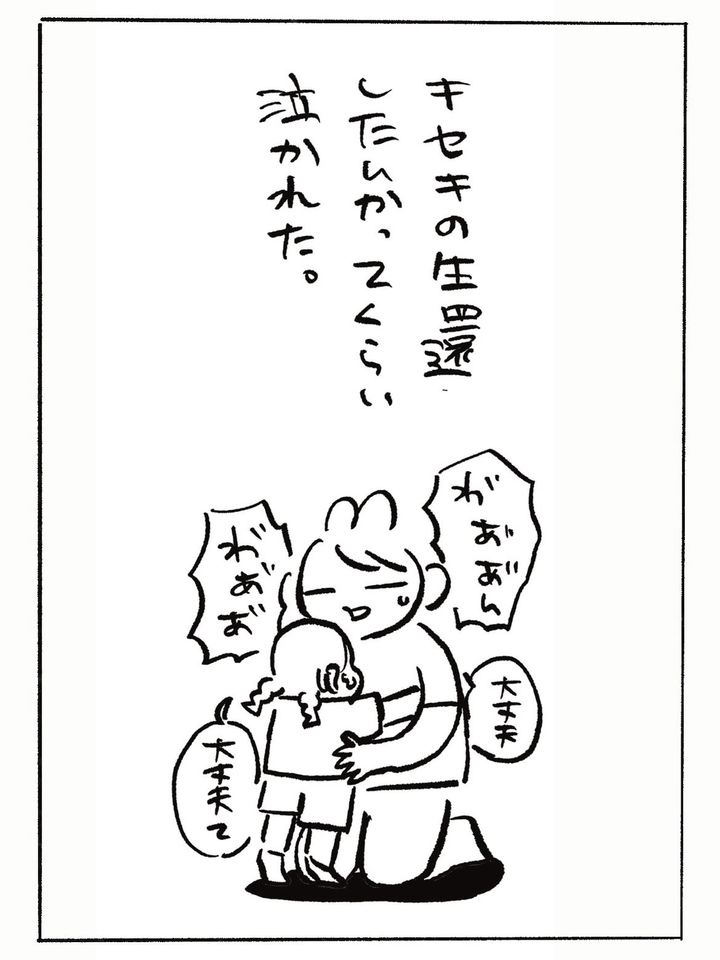 キセキの生還
したんかってくらい
泣かれた。
わ゛あ゛あ゛ん
わ゛あ゛あ゛
大丈夫
大丈夫て